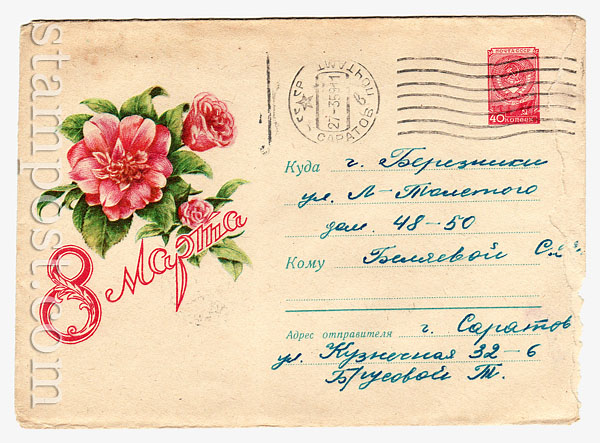 stampost.com
СССР
САРАТОВ
ПОЧТАМТ
27-3 59-11
ПОЧТА СССР
40 КОПЕЕК
Куда г. Березники
ул. Л-Толстого
дом. 48-50
Кому Беляевой
Адрес отправителя г. Саратов
ул. Кузнечная 32-6
Брусовой Т.
8 Марта